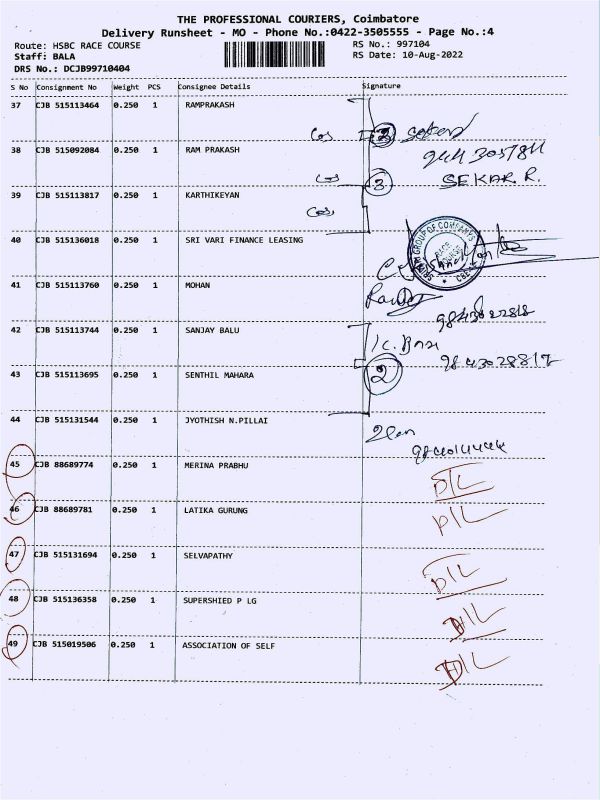 THE PROFESSIONAL COURIERS, Coimbatore
Delivery Runsheet - MO - Phone No.:0422-3505555 - Page No.:4
Route: HSBC RACE COURSE RS No.: 997104
Staff: BALA RS Date: 10-Aug-2022
DRS No.: DCJB99710404
S No Consignment No Weight PCS Consignee Details Signature
37 CJB 515113464 0.250 1 RAMPRAKASH
2
38 CJB 515092084 0.250 1 RAM PRAKASH
SEKAR R.
3
39 CJB 515113817 0.250 1 KARTHIKEYAN
40 CJB 515136018 0.250 1 SRI VARI FINANCE LEASING
GROUP OF COMPANYS
41 CJB 515113760 0.250 1 MOHAN
42 CJB 515113744 0.250 1 SANJAY BALU
43 CJB 515113695 0.250 1 SENTHIL MAHARA
2
44 CJB 515131544 0.250 1 JYOTHISH N.PILLAI
45 CJB 88689774 0.250 1 MERINA PRABHU
D/L
46 CJB 88689781 0.250 1 LATIKA GURUNG
D/L
47 CJB 515131694 0.250 1 SELVAPATHY
D/L
48 CJB 515136358 0.250 1 SUPERSHIED P LG
D/L
49 CJB 515019506 0.250 1 ASSOCIATION OF SELF
D/L